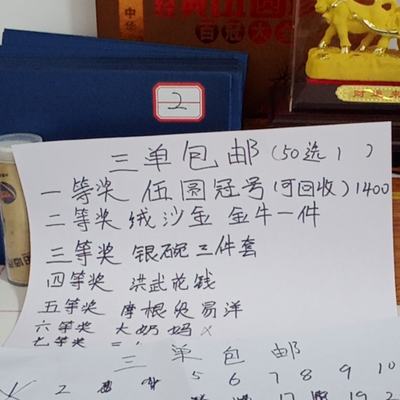 中华
百冠大全
2
财上来
三单包邮(50选1)
一等奖 伍圆冠号(可回收)1400
二等奖 绒沙金 金牛一件
三等奖 银碗三件套
四等奖 洪武花钱
五等奖 摩根 易洋
六等奖 大奶妈 x
七等奖
三单包邮
2 5 6 7 8 9 10
17 19 2